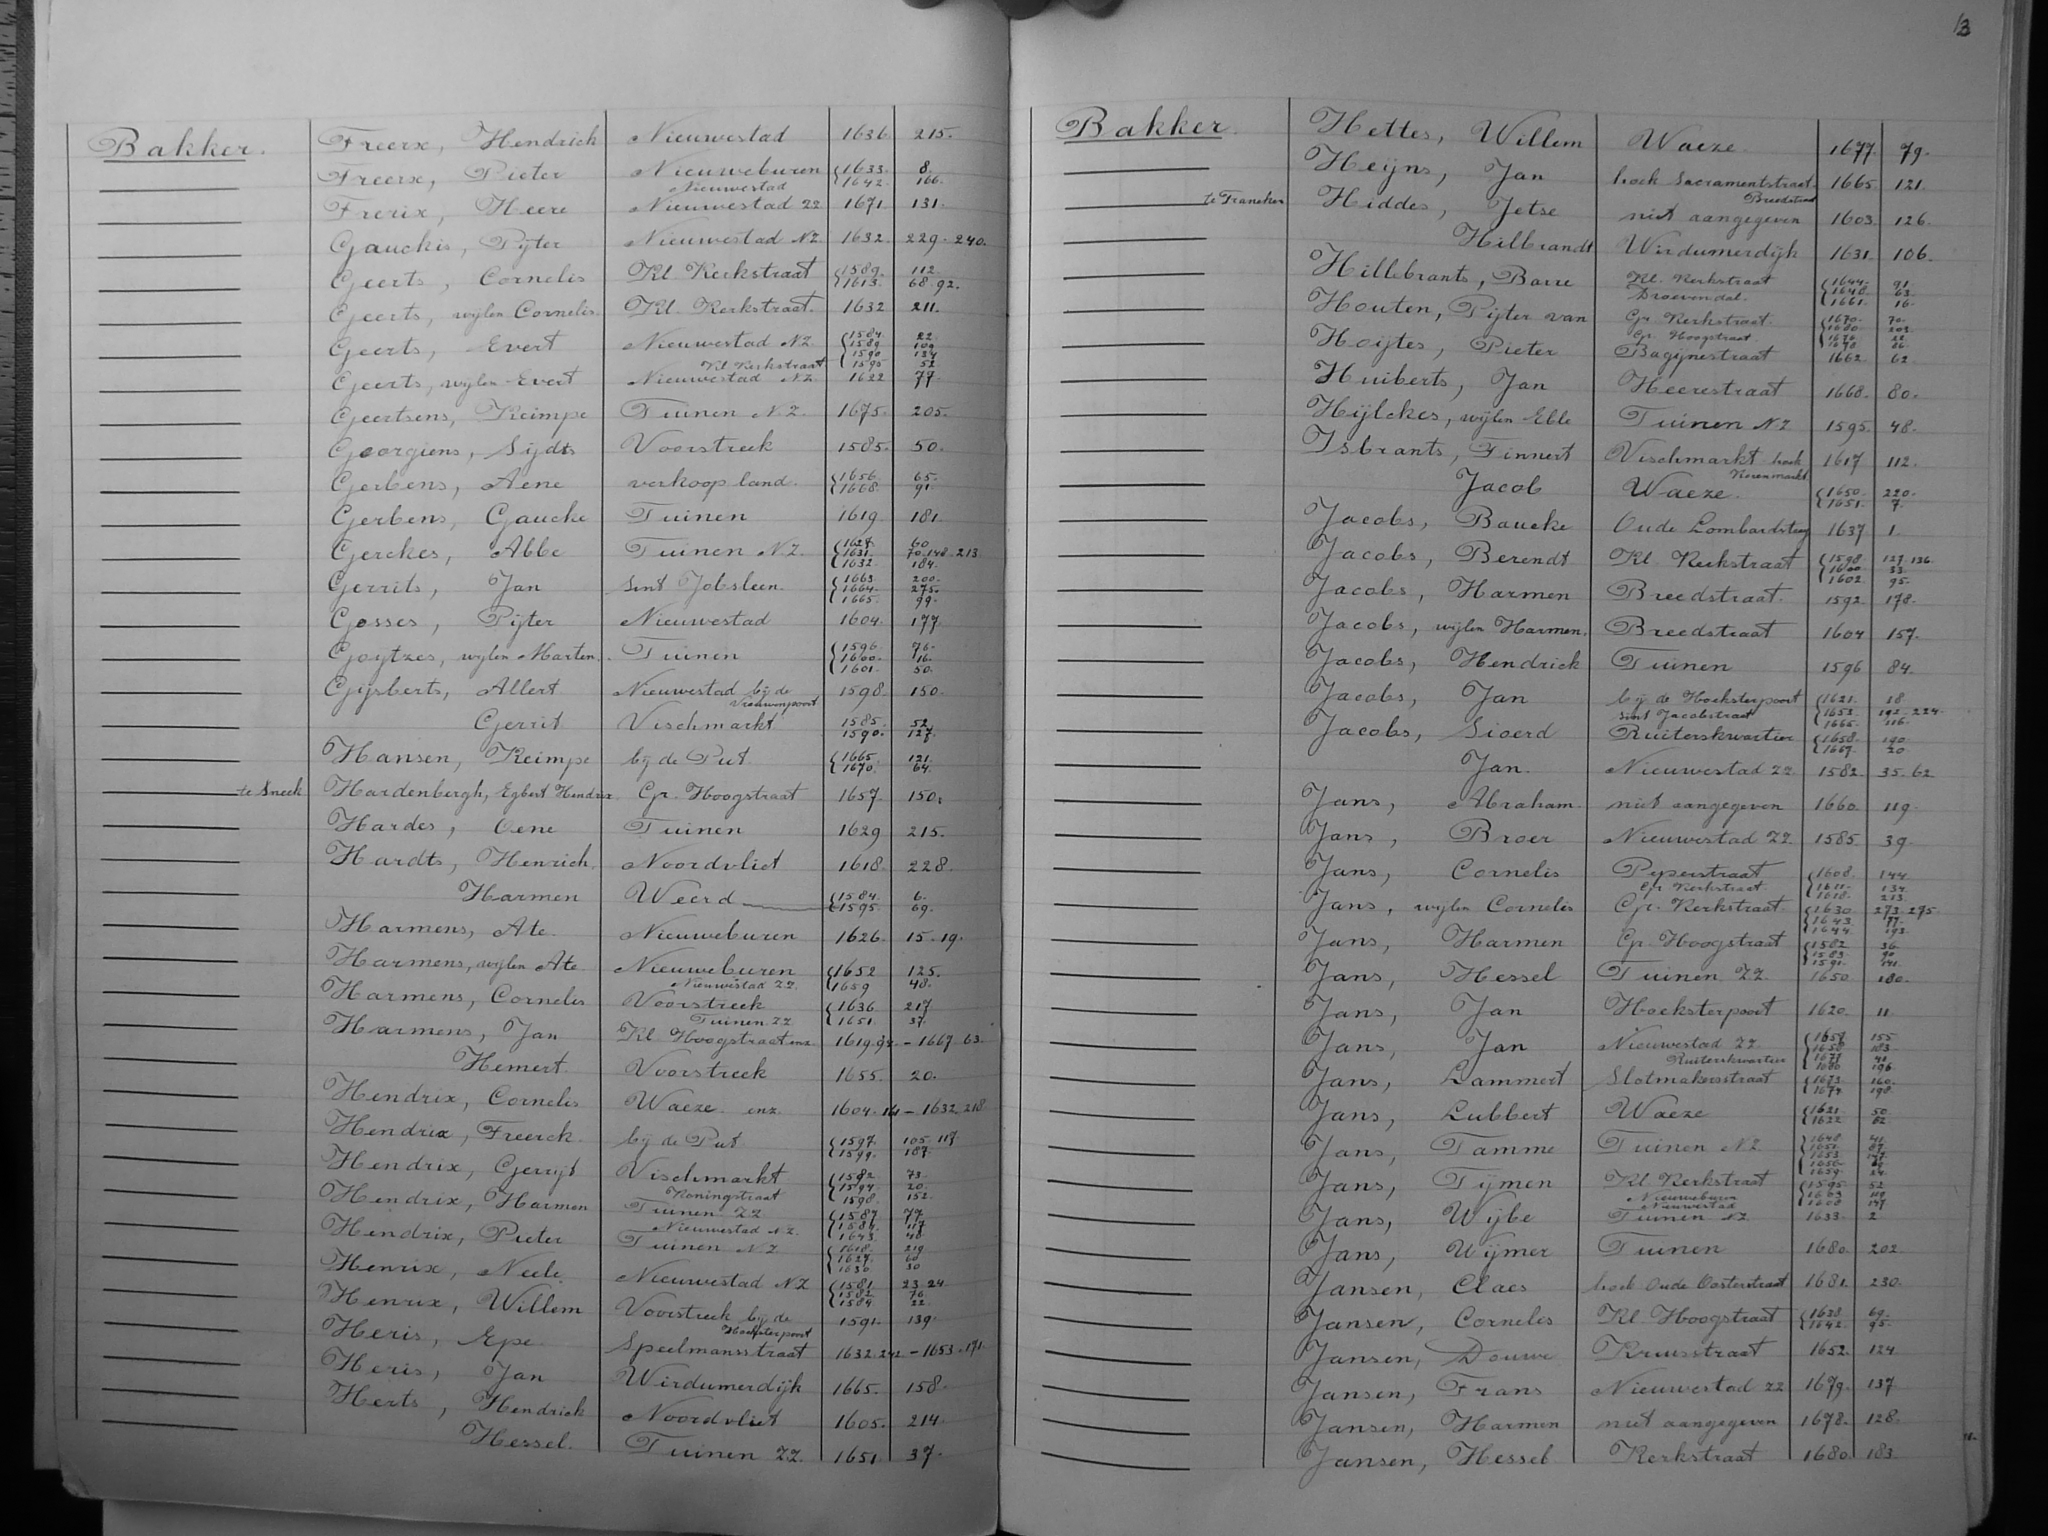 13
Bakker. Freerx, Hendrick Nieuwestad 1636 215.
Freerx, Pieter Nieuweburen 1633. 8.
Nieuwestad 1642. 166.
Frerix, Heere Nieuwestad ZZ 1671 131.
Gauckis, Pijter Nieuwestad NZ 1632. 229. 240.
Geerts, Cornelis Kl. Kerkstraat 1589. 112.
1613. 68. 92.
Geerts, wijlen Cornelis. Kl. Kerkstraat. 1632 211.
Geerts, Evert Nieuwestad NZ. 1584. 22.
1589 109
1590 134
Kl Kerkstraat 1595 52
Geerts, wijlen Evert Nieuwestad NZ. 1622 77.
Geertsens, Reimpe Tuinen NZ. 1675. 205.
Georgiens, Sijdts Voorstreek 1585. 50.
Gerbens, Aene verkoop land. 1656. 65.
1668. 91.
Gerbens, Gaucke Tuinen 1619. 181.
Gerckes, Abbe Tuinen NZ. 1627. 60
1631. 70. 148. 213
1632. 184.
Gerrits, Jan Sint Jobsleen. 1663 200.
1664. 275.
1665. 99.
Gosses, Pijter Nieuwestad 1604. 177
Goytzes, wijlen Marten. Tuinen 1596 76.
1600. 16.
1601. 50.
Gijsberts, Allert Nieuwestad bij de 1598. 150.
Vrouwenpoort
Gerrit Vischmarkt 1585. 52.
1590. 127.
Hansen, Reimpe bij de Put 1665. 121.
1670. 64.
te Sneek Hardenbergh, Egbert Hendrix Gr. Hoogstraat 1657. 150.
Hardes, Oene Tuinen 1629 215.
Hardts, Henrich. Noordvliet 1618. 228.
Harmen Weerd 1584. 6.
1595. 69.
Harmens, Ate. Nieuweburen 1626. 15. 19.
Harmens, wijlen Ate Nieuweburen 1652 125.
Nieuwestad ZZ. 1659 48.
Harmens, Cornelis Voorstreek 1636 217
Tuinen ZZ 1651. 37.
Harmens, Jan Kl. Hoogstraat enz 1619. 94 - 1667. 63.
Hemert. Voorstreek 1655. 20.
Hendrix, Cornelis Waeze. enz. 1604. 14 - 1632. 218
Hendrix, Freerck. bij de Put. 1597. 105. 117
1599. 187.
Hendrix, Gerryt Vischmarkt 1582 73.
1594. 20.
Koningstraat 1598. 152.
Hendrix, Harmen Tuinen ZZ 1587 77.
Nieuwestad NZ.
1643. 48.
Hendrix, Pieter Tuinen NZ 1618. 219
1627. 60
1636 30
Henrix, Neele. Nieuwestad NZ 1581. 23. 24.
1582 76.
1584 22.
Henrix, Willem Voorstreek bij de 1591. 139
Hoeksterpoort
Heris, Epe. Speelmansstraat 1632. 242 - 1653. 171.
Heris, Jan Wirdumerdijk 1665. 158.
Herts, Hendrick Noordvliet 1605. 214.
Hessel. Tuinen ZZ. 1651 37.
Bakker. Hettes, Willem Waeze. 1677. 79.
Heijns, Jan hoek Sacramentstraat. 1665. 121.
Breedstraat
te Franeker Hiddes, Jetse niet aangegeven 1603. 126.
Hilbrandt Wirdumerdijk 1631. 106.
Hillebrants, Barre Kl. Kerkstraat 1644. 91.
1648. 63.
Droevendal. 1661. 16.
Houten, Pijter van Gr Kerkstraat. 1670. 70.
1680 202.
Gr. Hoogstraat 1676
1678 86.
Hoijtes, Pieter Bagijnestraat 1662. 62.
Huiberts, Jan Heerestraat 1668. 80.
Hijlckes, wijlen Eble Tuinen NZ 1595. 48.
Isbrants, Finnert Vischmarkt hoek 1617 112.
Korenmarkt
Jacob Waeze. 1650. 220.
1651. 7.
Jacobs, Baucke Oude Lombardsteeg 1637 1.
Jacobs, Berendt Kl. Kerkstraat 1598. 127. 136.
1600. 33.
1602. 95.
Jacobs, Harmen Breedstraat. 1592. 178.
Jacobs, wijlen Harmen. Breedstraat 1604 157.
Jacobs, Hendrick Tuinen 1596 84.
Jacobs, Jan bij de Hoeksterpoort 1621. 18
Sint Jacobstraat 1652. 192. 224.
1665. 116.
Jacobs, Sioerd Ruiterskwartier 1658. 190.
1667. 20
Jan. Nieuwestad ZZ. 1582. 35. 62
Jans, Abraham. niet aangegeven 1660. 119.
Jans, Broer Nieuwestad ZZ. 1585. 39.
Jans, Cornelis Peperstraat 1608. 144
Gr Kerkstraat. 1611. 134.
1618. 213.
Jans, wijlen Cornelis Gr. Kerkstraat. 1630 273. 275.
1643. 77.
1644. 193.
Jans, Harmen Gr Hoogstraat 1582 36.
1583. 90
1591. 141.
Jans, Hessel Tuinen ZZ. 1650. 180.
Jans, Jan Hoeksterpoort 1620. 11.
Jans, Jan Nieuwestad ZZ 1657. 155
1658 183.
Ruiterskwartier 1677 41
1680 196.
Jans, Lammert Slotmakersstraat 1673. 160.
1674. 198.
Jans, Lubbert Waeze 1621. 50.
1622 62
Jans, Tamme Tuinen NZ 1648. 41.
1653
1656
1659. 24.
Jans, Tijmen Kl Kerkstraat 1595. 52
Nieuweburen 1603 119
Nieuwestad 1608 147
Jans, Wijbe Tuinen NZ 1633. 2
Jans, Wijmer Tuinen 1680. 202
Jansen, Claes hoek Oude Oosterstraat 1681. 230.
Jansen, Cornelis Kl. Hoogstraat 1638. 69.
1642. 95.
Jansen, Douwe Kruisstraat 1652. 124
Jansen, Frans Nieuwestad ZZ 1679. 137
Jansen, Harmen niet aangegeven 1678. 128.
Jansen, Hessel Kerkstraat 1680. 183.